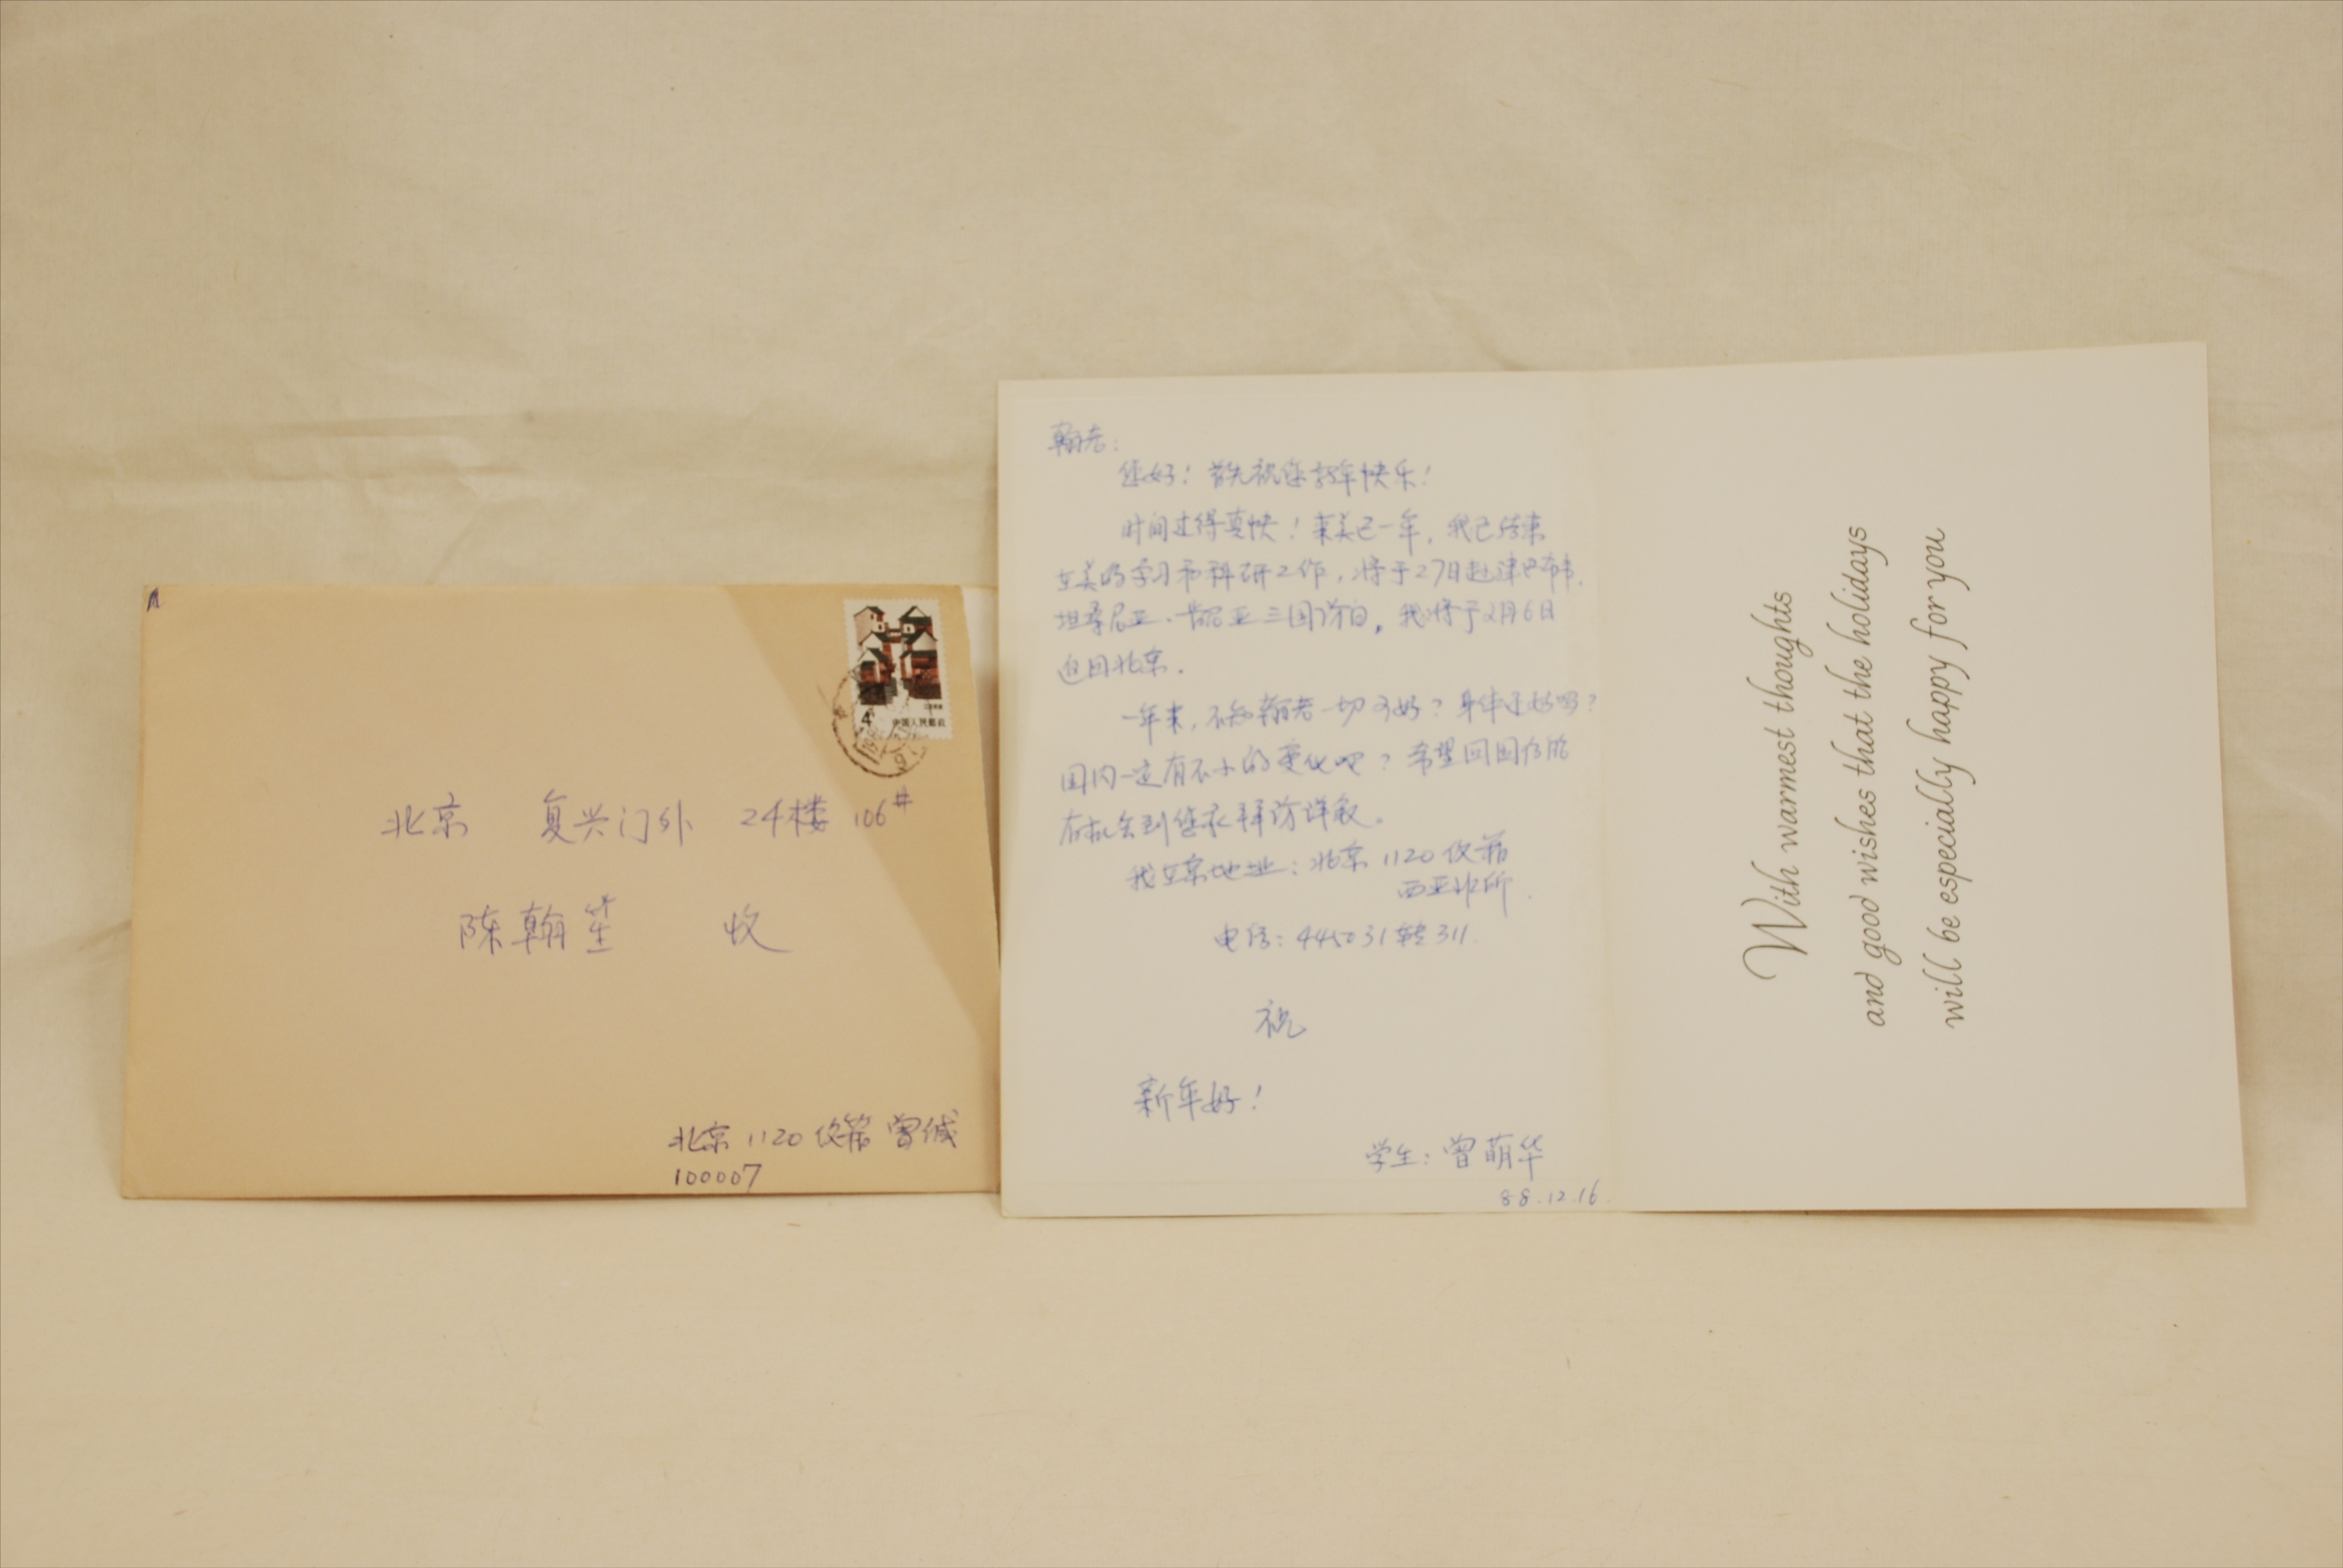 4 中国人民邮政
北京 复兴门外 24楼 106#
陈翰笙 收
北京 1120 信箱 曾
100007
翰老:
您好! 首先祝您新年快乐!
时间过得真快! 来美已一年, 我已结束
在美的学习和科研工作, 将于27日赴津巴布韦、
坦桑尼亚、肯尼亚三国访问, 我将于2月6日
返回北京.
一年来, 不知翰老一切可好? 身体还好吗?
国内一定有不小的变化吧? 希望回国后能
有机会到您家拜访详叙。
我在京地址: 北京 1120 信箱
西亚非所.
电话: 445031转311.
祝
新年好!
学生: 曾萌华
88.12.16.
With warmest thoughts
and good wishes that the holidays
will be especially happy for you